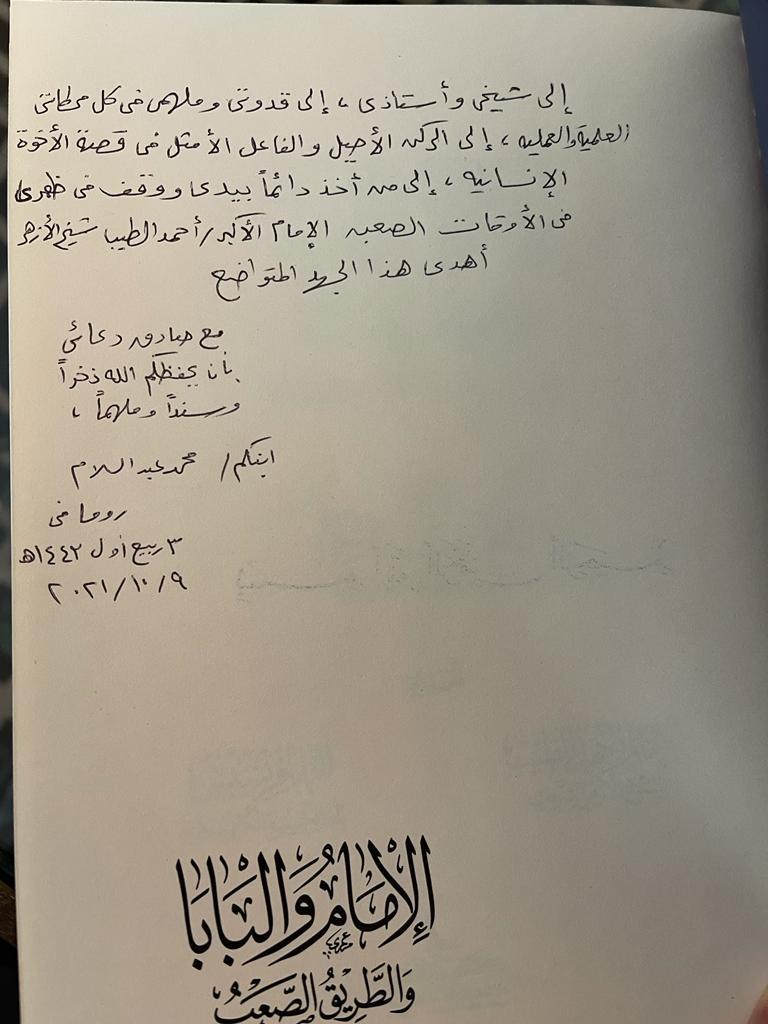 إلى شيخي وأستاذى، إلى قدوتى وملهمى فى كل محطاتى
العلمية والعمليه، إلى الركن الأصيل والفاعل الأمثل فى قصة الأخوة
الإنسانيه، إلى من أخذ دائماً بيدى ووقف فى ظهرى
فى الأوقات الصعبه الإمام الأكبر/ أحمد الطيب شيخ الأزهر
أهدى هذا الجهد المتواضع
مع صادق دعائى
بأن يحفظكم الله ذخراً
وسنداً وملهماً،
ابنكم/ محمد عبد السلام
روما فى
٣ ربيع أول ١٤٤٢هـ
٢٠٢١/١٠/٩
الإِمَامُ وَالبَابَا
وَالطَّرِيقُ الصَّعْبُ